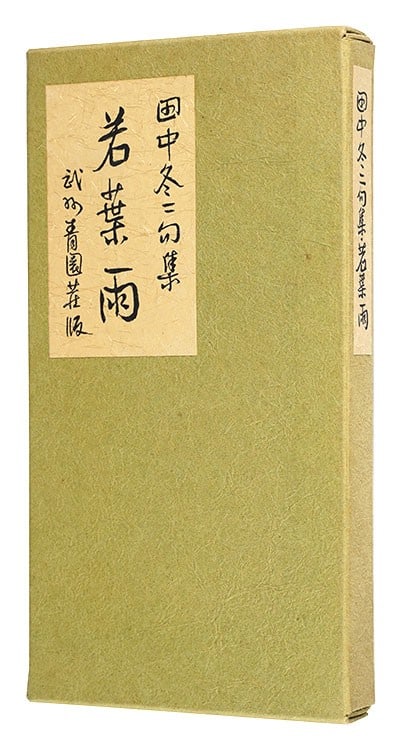 田中冬二句集
若葉雨
武州青園荘版
田中冬二句集・若葉雨